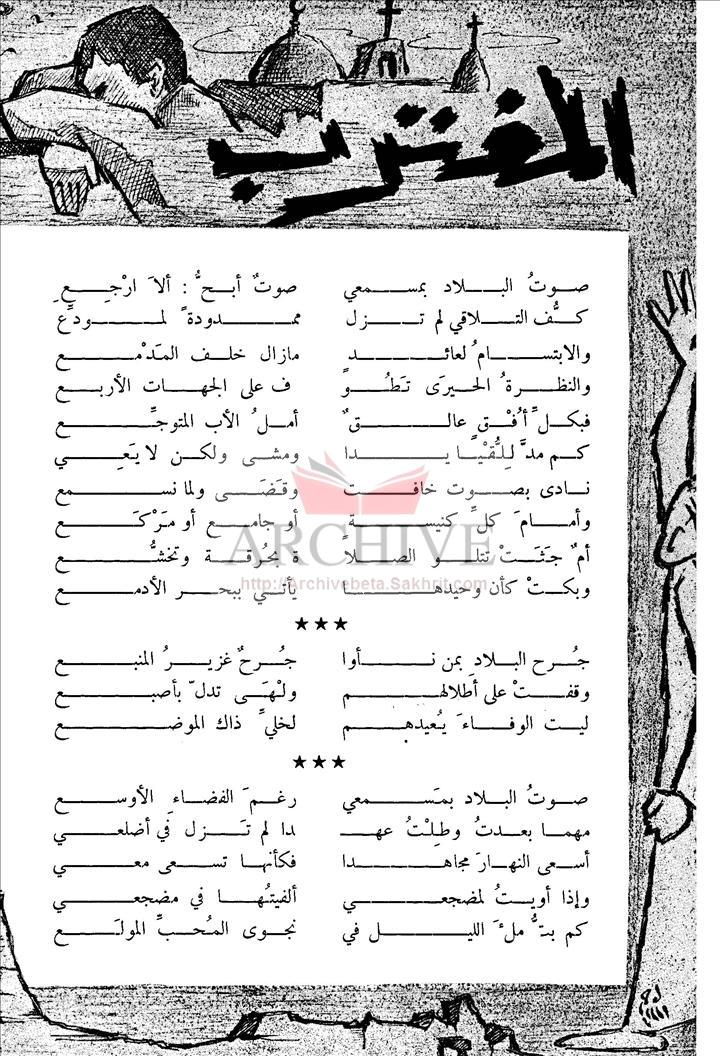 المغترب
صوتُ البلاد بمسمعي صوتٌ أبحُّ : ألا ارْجِعِ
كفُّ التلاقي لم تزل ممدودةً لمودّع
والابتسامُ لعائد مازال خلف المدْمع
والنظرةُ الحيرَى تَطُو ف على الجهات الأربع
فبكلِّ أُفْقٍ عالقٌ أملُ الأب المتوجِّع
كم مدَّ لِلُّقْيَا يدا ومشى ولكن لا يَعِي
نادى بصوت خافت وقَضَى ولما نسمع
وأمامَ كلِّ كنيسة أو جامع أو مَرْكَع
أمٌ جَثَتْ تتلو الصلا ة بحُرقة وتخشُّع
وبكتْ كأن وحيدها يأتي ببحر الأدمع
★★★
جُرح البلاد بمن نأوا جُرحٌ غزيرُ المنبع
وقفتْ على أطلالهم ولْهَى تدلّ بأصبع
ليت الوفاءَ يُعيدهم لخليِّ ذاك الموضع
★★★
صوتُ البلاد بمَسمعي رغمَ الفضاءِ الأوسع
مهما بعدتُ وطِلْتُ عهـ دا لم تَزل في أضلعي
أسعى النهارَ مجاهدا فكأنها تسعى معي
وإذا أويتُ لمضجعي ألفيتُها في مضجعي
كم بتُّ ملءَ الليل في نجوى المُحبِّ المولَع
ARCHIVE
http://Archivebeta.Sakhrit.com